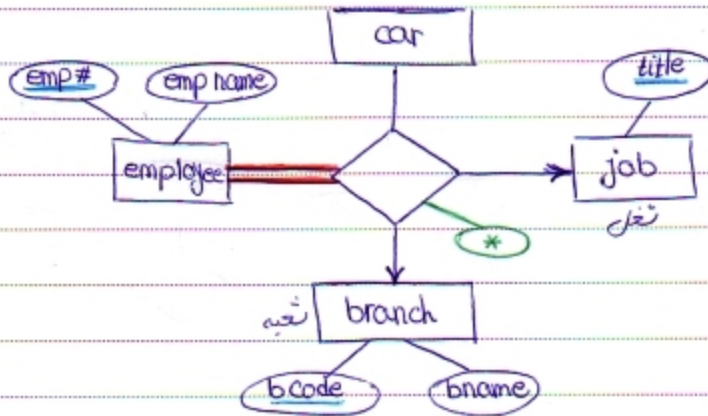 car
emp#
emp name
title
employee
job
شغل
*
شعبه
branch
bcode
bname